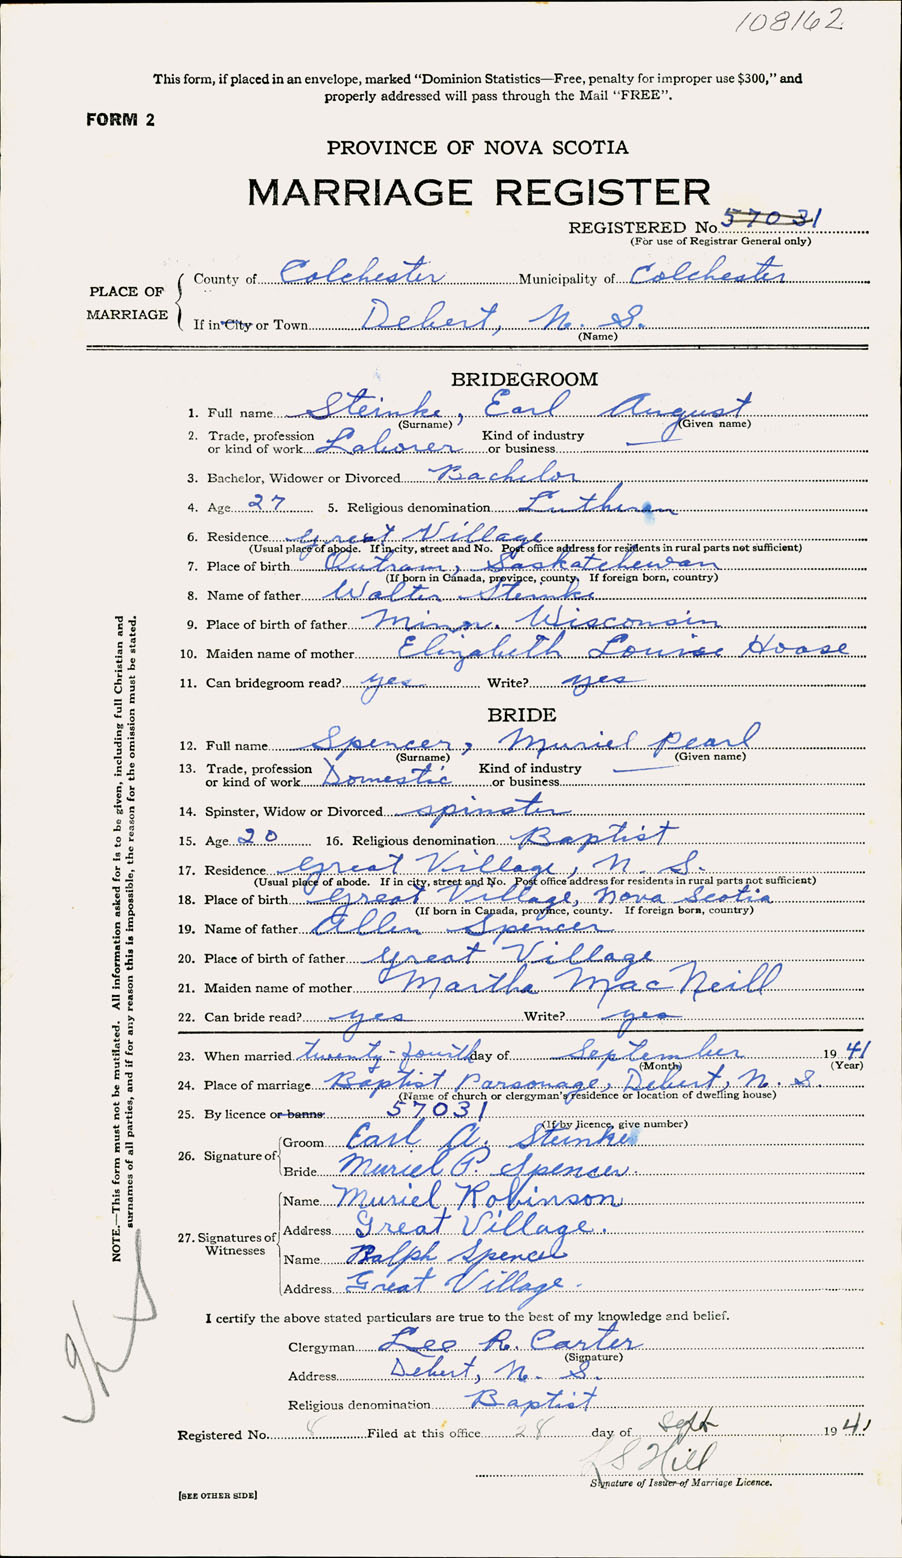 108162
This form, if placed in an envelope, marked "Dominion Statistics—Free, penalty for improper use $300," and
properly addressed will pass through the Mail "FREE".
FORM 2
PROVINCE OF NOVA SCOTIA
MARRIAGE REGISTER
REGISTERED No. 57031
(For use of Registrar General only)
PLACE OF MARRIAGE
County of Colchester Municipality of Colchester
If in City or Town Debert, N. S.
(Name)
BRIDEGROOM
1. Full name Steinke, Earl August
(Surname) (Given name)
2. Trade, profession or kind of work Laborer Kind of industry or business —
3. Bachelor, Widower or Divorced Bachelor
4. Age 27 5. Religious denomination Lutheran
6. Residence Great Village
(Usual place of abode. If in city, street and No. Post office address for residents in rural parts not sufficient)
7. Place of birth Outram, Saskatchewan
(If born in Canada, province, county. If foreign born, country)
8. Name of father Walter Steinke
9. Place of birth of father Minn. Wisconsin
10. Maiden name of mother Elizabeth Louise Hoase
11. Can bridegroom read? yes Write? yes
BRIDE
12. Full name Spencer, Muriel Pearl
(Surname) (Given name)
13. Trade, profession or kind of work Domestic Kind of industry or business —
14. Spinster, Widow or Divorced spinster
15. Age 20 16. Religious denomination Baptist
17. Residence Great Village, N. S.
(Usual place of abode. If in city, street and No. Post office address for residents in rural parts not sufficient)
18. Place of birth Great Village, Nova Scotia
(If born in Canada, province, county. If foreign born, country)
19. Name of father Allen Spencer
20. Place of birth of father Great Village
21. Maiden name of mother Martha MacNeill
22. Can bride read? yes Write? yes
23. When married twenty-fourth day of September 1941
(Month) (Year)
24. Place of marriage Baptist Parsonage, Debert, N. S.
(Name of church or clergyman's residence or location of dwelling house)
25. By licence or banns 57031
(If by licence, give number)
26. Signature of
Groom Earl A. Steinke
Bride Muriel P. Spencer.
27. Signatures of Witnesses
Name Muriel Robinson
Address Great Village.
Name Ralph Spencer
Address Great Village.
I certify the above stated particulars are true to the best of my knowledge and belief.
Clergyman Lee R. Carter
(Signature)
Address Debert, N. S.
Religious denomination Baptist
Registered No. 8 Filed at this office 28 day of Sept 1941
L S Hill
Signature of Issuer of Marriage Licence.
[SEE OTHER SIDE]
NOTE.—This form must not be mutilated. All information asked for is to be given, including full Christian and
surnames of all parties, and if for any reason this is impossible, the reason for the omission must be stated.